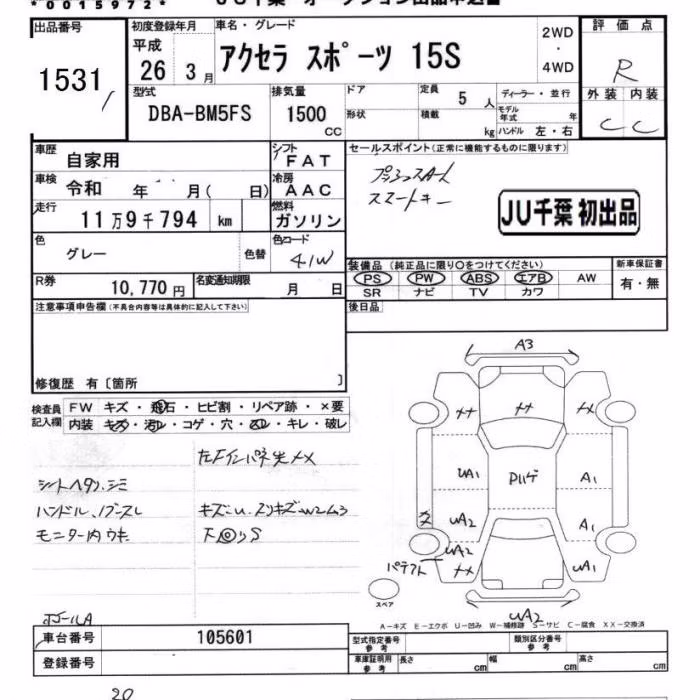 *0015972*
出品番号
1531
初度登録年月
平成
26 3月
車名・グレード
アクセラ スポーツ 15S
2WD
・
4WD
評価点
R
外装 内装
C C
型式
DBA-BM5FS
排気量
1500
CC
ドア
形状
定員
5 人
積載
kg
ディーラー・並行
モデル年式 年
ハンドル 左・右
車歴
自家用
シフト
FAT
車検
令和 年 月( 日)
冷房
AAC
走行
11万9千794 km
燃料
ガソリン
色
グレー
色替
色コード
41W
R券
10,770円
名変通知期限
月 日
セールスポイント(正常に機能するものに限ります)
スマートキー
JU千葉 初出品
装備品 (純正品に限り○をつけてください)
PS PW ABS エアB AW
SR ナビ TV カワ
新車保証書
有・無
後日品
注意事項申告欄(不具合内容等は具体的に記入して下さい)
修復歴 有〔箇所 〕
検査員記入欄
FW キズ・飛石・ヒビ割・リペア跡・×要
内装 キズ・汚れ・コゲ・穴・スレ・キレ・破レ
ハンドル
モニター内ウキ
A3
UA1
A1
UA2
A1
UA2
UA1
UA2
スペア
A-キズ E-エクボ U-凹み W-補修跡 S-サビ C-腐食 XX-交換済
車台番号
105601
登録番号
型式指定番号
参考
類別区分番号
参考
車庫証明用
参考
長さ cm
幅 cm
高さ cm
20